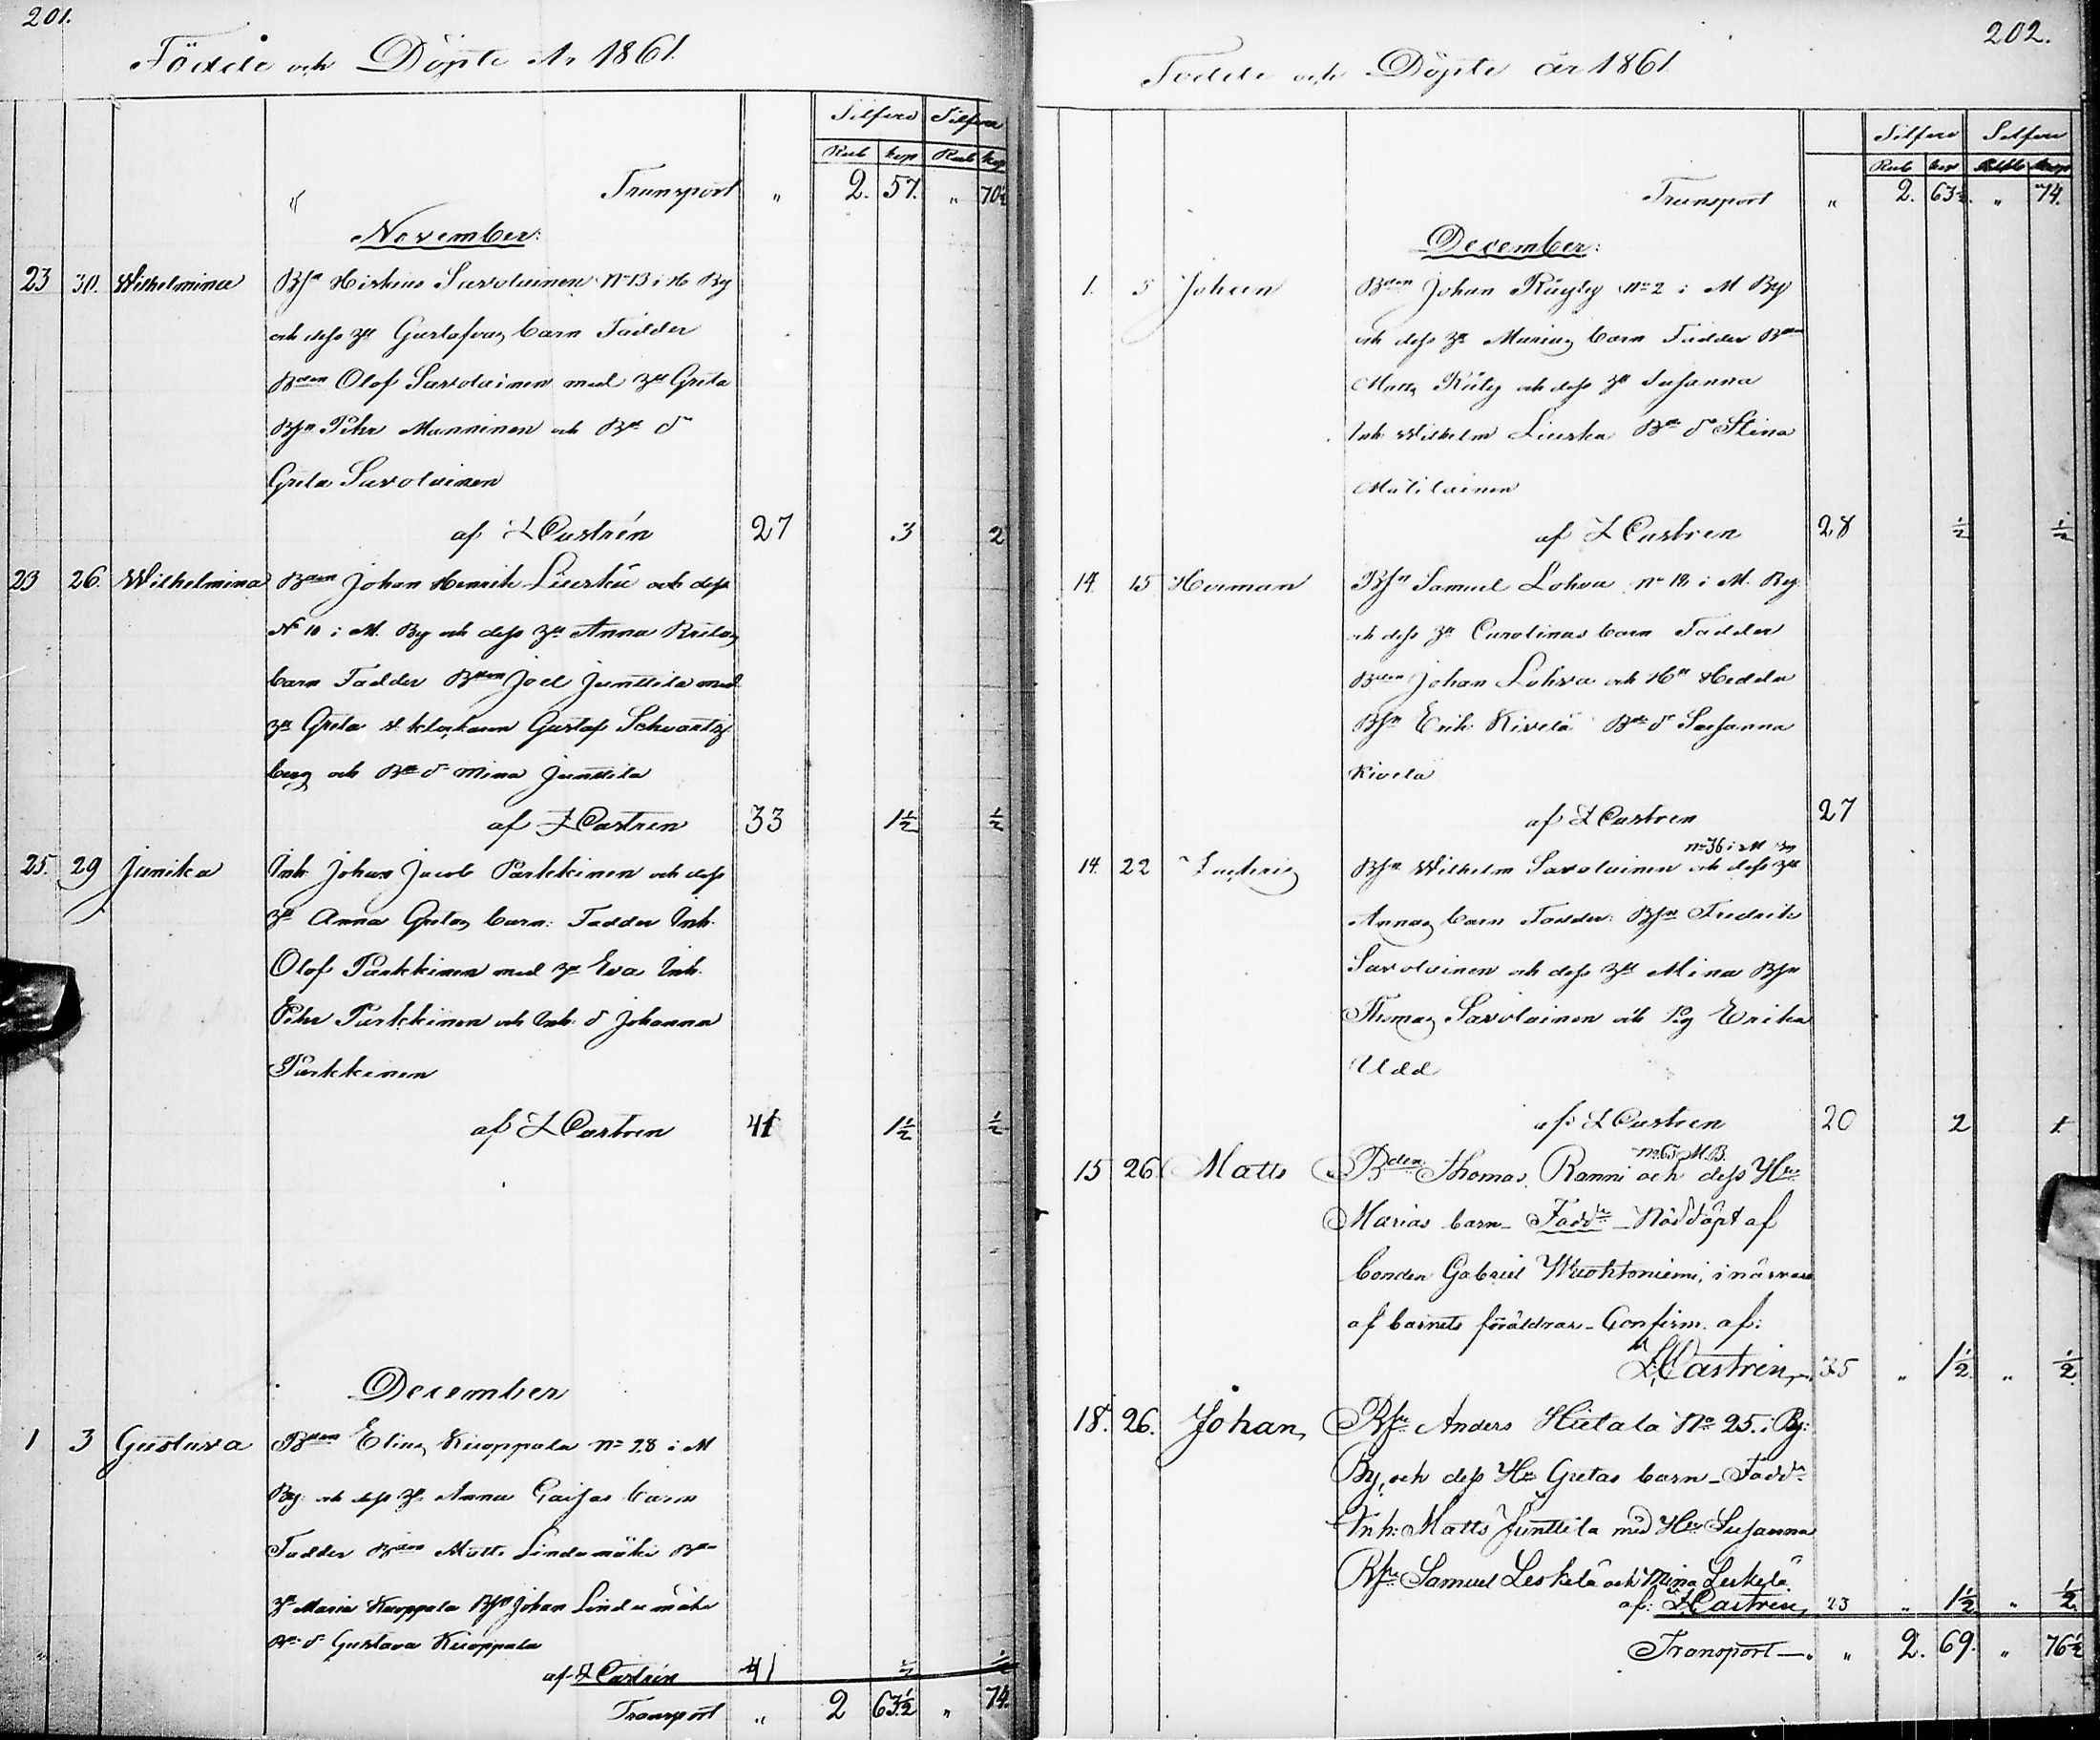 201.
Födde och Döpte År 1861.
Silfver Silfver
Rub kop Rub kop
" Transport " 2. 57. " 70½
November:
23 30. Wilhelmina Bsn Hiskias Savolainen No 13 i M By
och dess H. Gustafvas barn Fadder
Bden Olof Savolainen med H Greta
Bsn Pehr Manninen och Be dr
Greta Savolainen
af L Castrén 27 3 2
23 26. Wilhelmina Bden Johan Henrik Liuskä och dess
No 10 i M. By och dess H Anna Britas
barn Fadder Bden Joel Junttila med
H Greta v. klockaren Gustaf Schvartz
berg och Be dr Mina Junttila
af L Castren 33 1½ ½
25. 29 Janika Inh. Johan Jacob Parkkinen och dess
H Anna Gretas barn: Fadder Inh.
Olof Parkkinen med H Eva Inh.
Pehr Parkkinen och Inh. d Johanna
Parkkinen
af L Castren 41 1½ ½
December
1 3 Gustava Bden Elias Kuoppala No 28 i M
By och dess H Anna Caisas barn
Fadder Bden Matts Lindamäki
H Maria Kuoppala Bsn Johan Lindamäki
Be d Gustava Kuoppala
af L Castrén 41 ½ ½
Transport " 2 63½ " 74.
202.
Födde och Döpte år 1861
Silfver Silfver
Rub kop Rub kop
Transport " 2. 63½ " 74.
December:
1. 5 Johan Bden Johan Räyhy No 2 i M By
och dess H Marias barn Fadder
Matts och dess H Susanna
Inh Wilhelm Liuska Be dr Stina
Matilainen
af L Castren 28 ½ ½
14. 15 Herman Bsn Samuel Lohva No 12 i M. By
och dess H Carolinas barn Fadder
Bden Johan Lohva och Hu Hedda
Bsn Erik Kivelä Be dr Susanna
Kivela
af L Castren 27
No 36 i M By
14. 22 Zachris Bsn Wilhelm Savolainen och dess H
Annas barn Fadder: Bsn Fredrik
Savolainen och dess H Mina Bsn
Thomas Savolainen och Pig Erika
Udd
af L Castren 20 2 1
No 65 M.B.
15 26. Matts Bden Thomas Ranni och dess Hu
Marias barn - Faddr - Nöddöpt af
bonden Gabriel Wuohtoniemi, i närvaro
af barnets föräldrar - Confirm. af:
L Castrén, 35 " 1½ " ½
18. 26. Johan, Bsn Anders Hietala No 25. i By:
By, och dess Hu Gretas barn - Faddr
Inh: Matts Junttila med Hu Susanna
Bsn Samuel Leskelä och Mina Leskelä
af: L Castrén, 23 " 1½ " ½
Transport - " 2. 69. " 76½